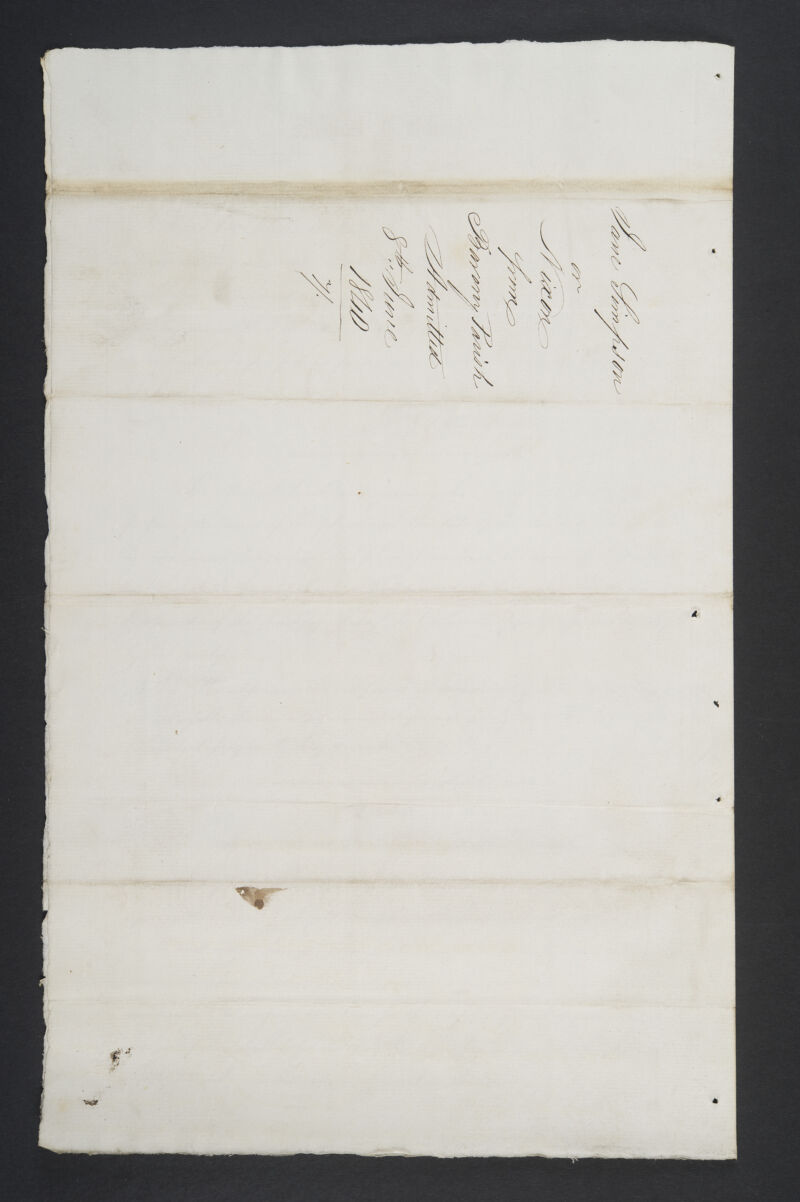 Jane Simpson
or
Nixon
from
Barony Parish
Admitted
8th June
1840